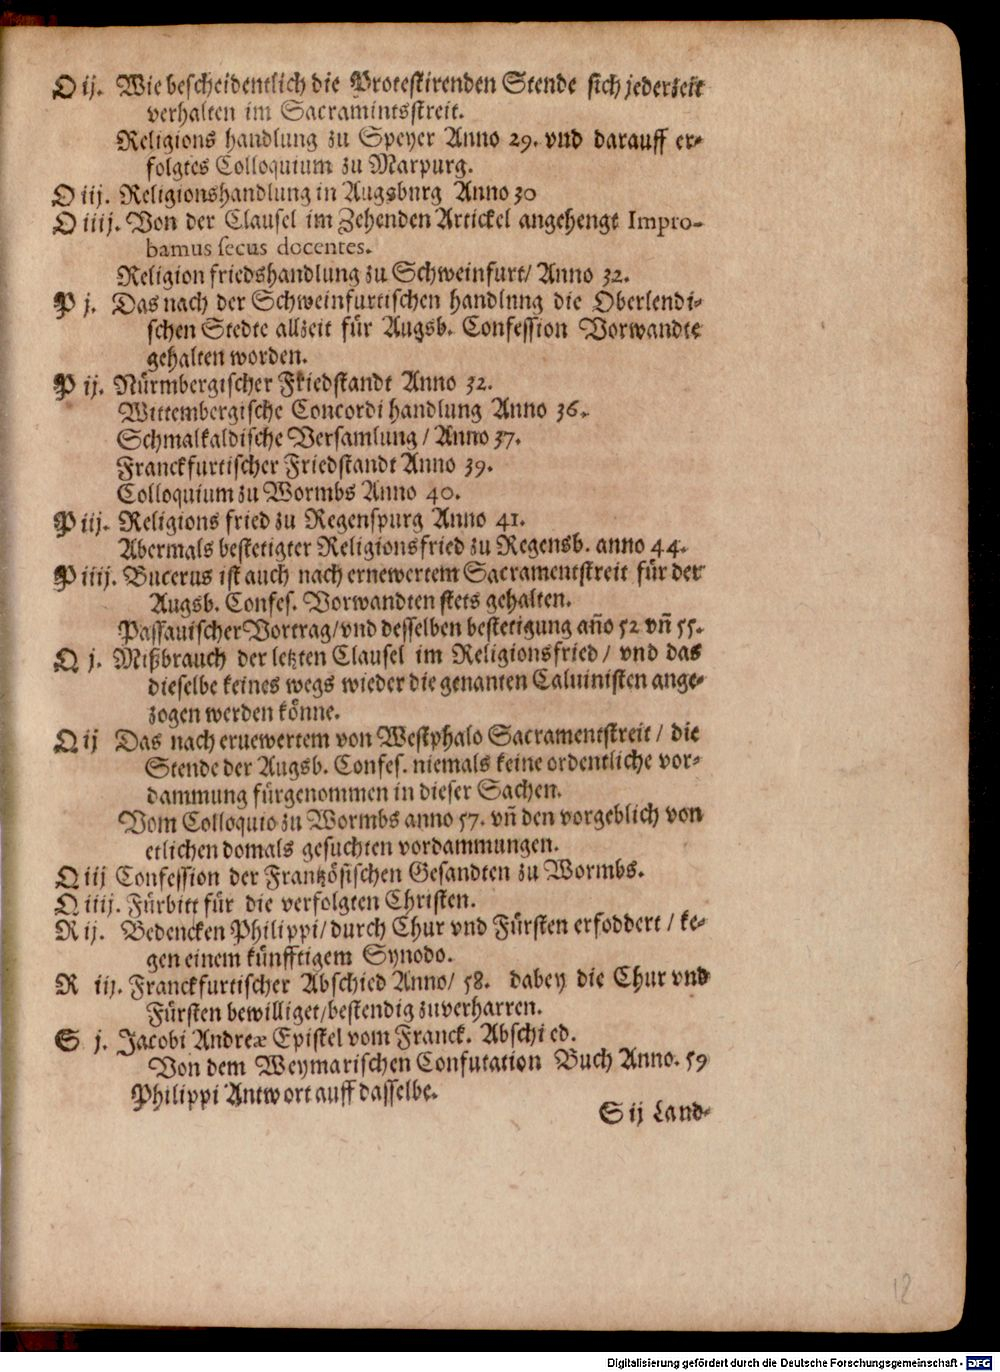 O ij. Wie bescheidentlich die Protestirenden Stende sich jederzeit
verhalten im Sacramintsstreit.
Religions handlung zu Speyer Anno 29. vnd darauff er-
folgtes Colloquium zu Marpurg.
O iij. Religionshandlung in Augsburg Anno 30
O iiij. Von der Clausel im Zehenden Artickel angehengt Impro-
bamus secus docentes.
Religion friedshandlung zu Schweinfurt/ Anno 32.
P j. Das nach der Schweinfurtischen handlung die Oberlendi-
schen Stedte allzeit für Augsb. Confession Vorwandte
gehalten worden.
P ij. Nürmbergischer Friedstandt Anno 32.
Wittembergische Concordi handlung Anno 36.
Schmalkaldische Versamlung / Anno 37.
Franckfurtischer Friedstandt Anno 39.
Colloquium zu Wormbs Anno 40.
P iij. Religions fried zu Regenspurg Anno 41.
Abermals bestetigter Religionsfried zu Regensb. anno 44.
P iiij. Bucerus ist auch nach ernewertem Sacramentstreit für der
Augsb. Confes. Vorwandten stets gehalten.
Passauischer Vortrag/ vnd desselben bestetigung año 52 vñ 55.
Q j. Mißbrauch der letzten Clausel im Religionsfried / vnd das
dieselbe keines wegs wieder die genanten Caluinisten ange-
zogen werden könne.
Q ij Das nach eruewertem von Westphalo Sacramentstreit / die
Stende der Augsb. Confes. niemals keine ordentliche vor-
dammung fürgenommen in dieser Sachen.
Vom Colloquio zu Wormbs anno 57. vñ den vorgeblich von
etlichen domals gesuchten vordammungen.
Q iij Confession der Frantzösischen Gesandten zu Wormbs.
Q iiij. Fürbitt für die verfolgten Christen.
R ij. Bedencken Philippi/ durch Chur vnd Fürsten erfoddert / ke-
gen einem künfftigem Synodo.
R iij. Franckfurtischer Abschied Anno/ 58. dabey die Chur vnd
Fürsten bewilliget/ bestendig zuverharren.
S j. Jacobi Andreæ Epistel vom Franck. Abschied.
Von dem Weymarischen Confutation Buch Anno. 59
Philippi Antwort auff dasselbe.
S ij Land-
12
Digitalisierung gefördert durch die Deutsche Forschungsgemeinschaft - DFG